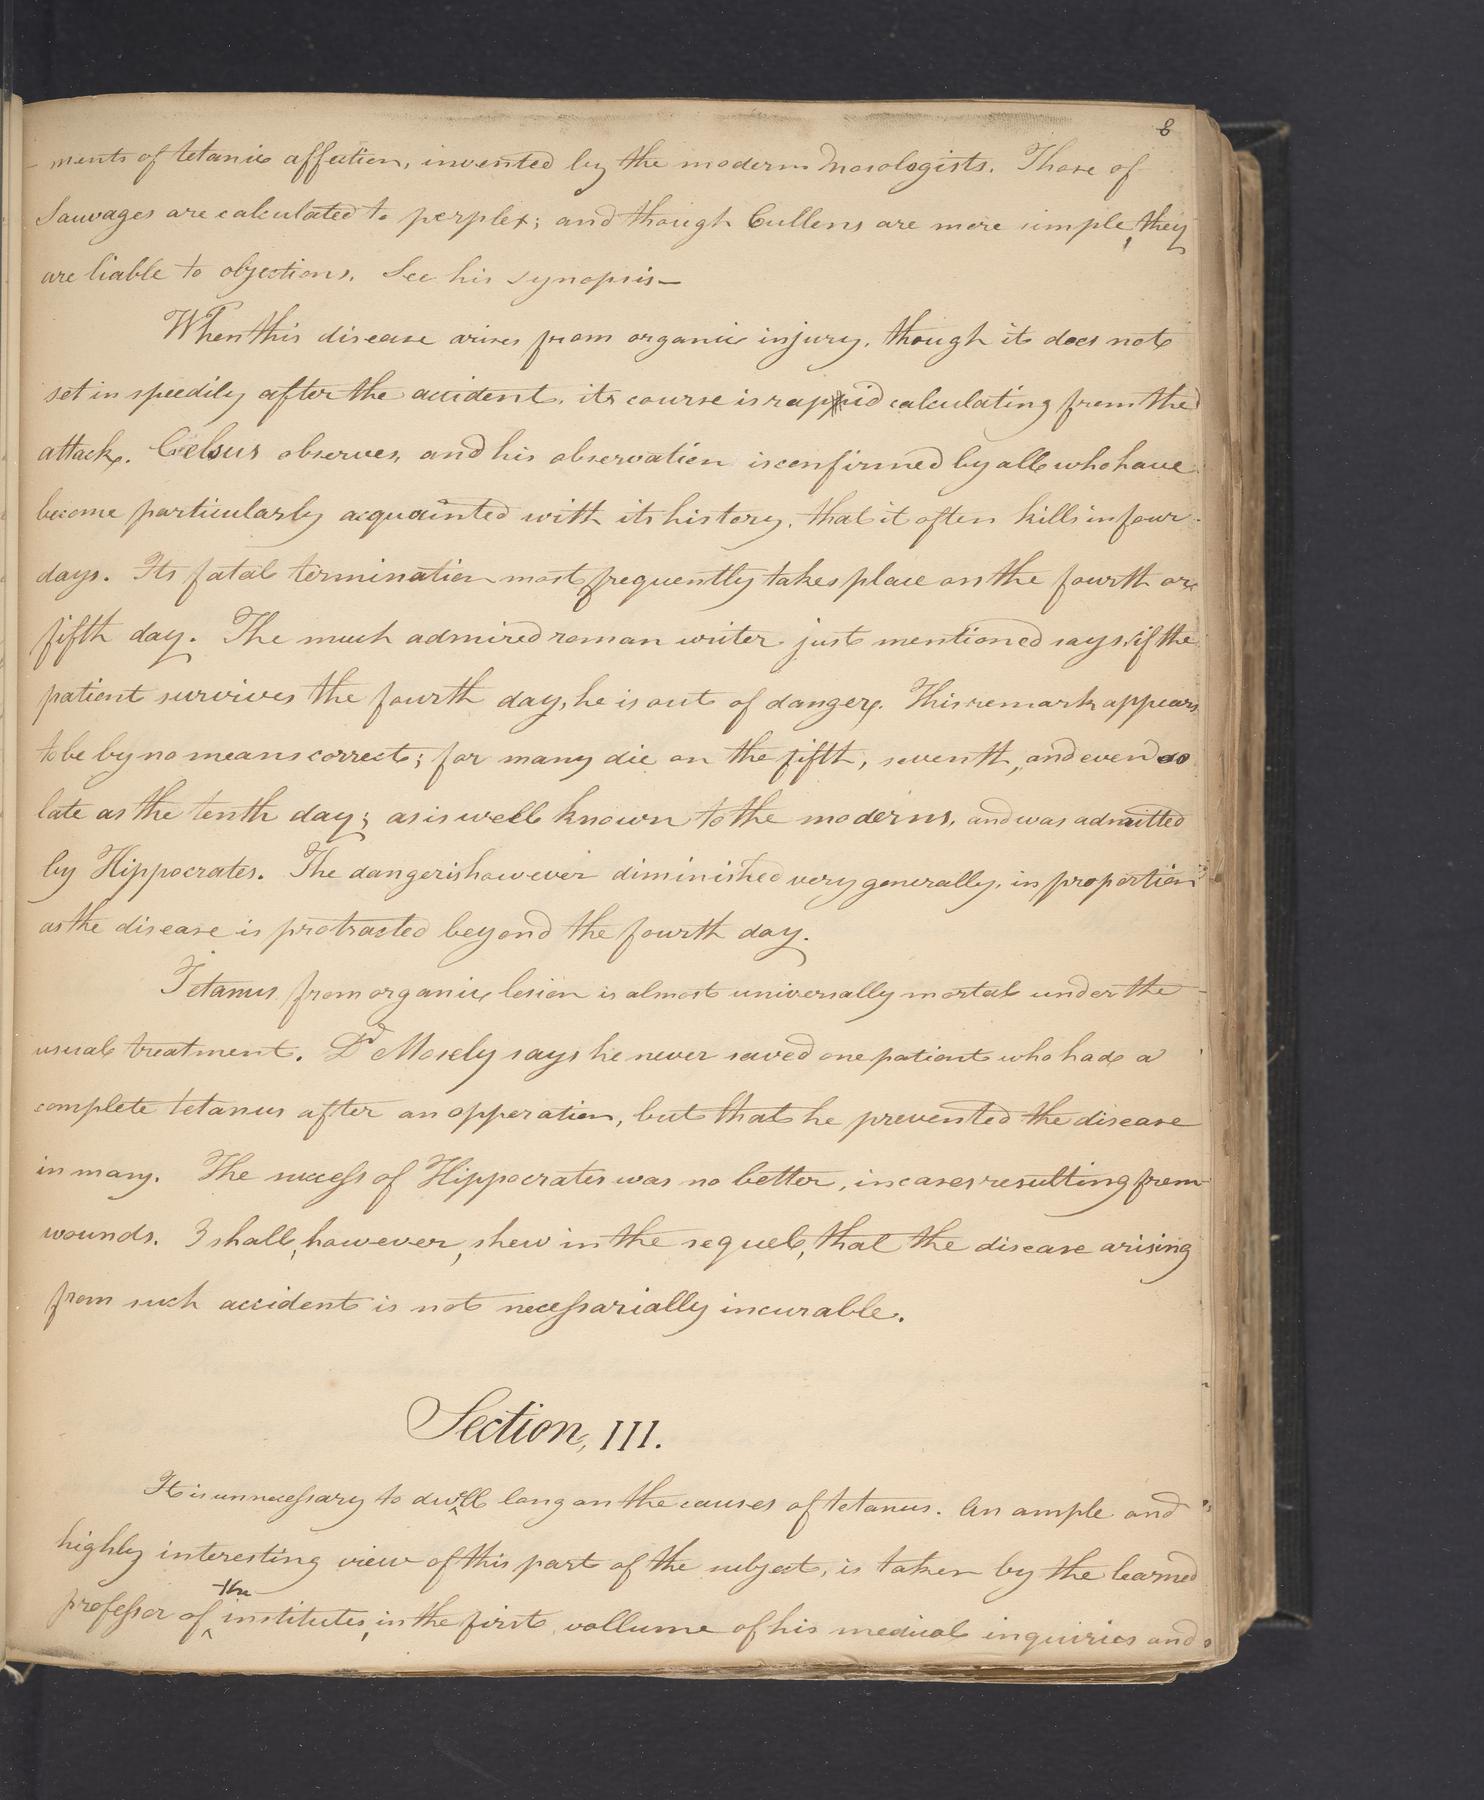 8
-ments of tetanic affection, invented by the modern Nosologists. Those of
Sauvages are calculated to perplex; and though Cullens are more simple, they
are liable to objections. See his synopsis—
When this disease arises from organic injury, though it does not
set in speedily after the accident, its course is rapid calculating from the
attack. Celsus observes, and his observation is confirmed by all who have
become particularly acquainted with its history, that it often kills in four
days. Its fatal termination most frequently takes place on the fourth or
fifth day. The much admired roman writer just mentioned says, if the
patient survives the fourth day, he is out of danger. This remark appears
to be by no means correct; for many die on the fifth, seventh, and even so
late as the tenth day; as is well known to the moderns, and was admitted
by Hippocrates. The danger is however diminished very generally, in proportion
as the disease is protracted beyond the fourth day.
Tetanus from organic lesion is almost universally mortal under the
usual treatment. Dr Mosely says he never saved one patient who had a
complete tetanus after an opperation, but that he prevented the disease
in many. The success of Hippocrates was no better, in cases resulting from
wounds. I shall, however, shew in the sequel, that the disease arising
from such accident is not necessarially incurable.
Section, III.
It is unnecessary to dwell long on the causes of tetanus. An ample and
highly interesting view of this part of the subject, is taken by the learned
professor of the institutes, in the first vollume of his medical inquiries and